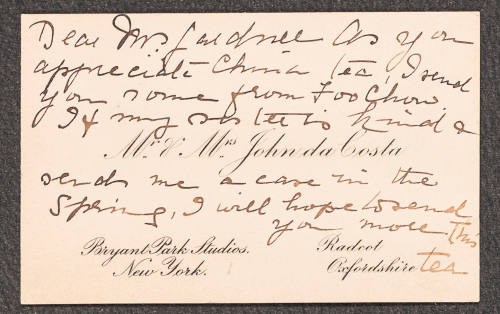 Dear Mrs. Gardner As you
appreciate China tea, I send
you some from Foo Chow
If my sister is kind &
Mr. & Mrs. John da Costa
sends me a case in the
Spring, I will hope to send
you more this
Bryant Park Studios. Radcot
New York. Oxfordshire tea